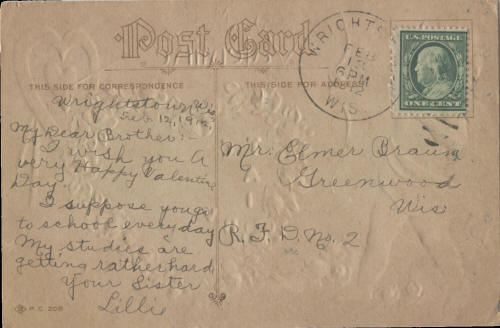 Post Card
THIS SIDE FOR CORRESPONDENCE
THIS SIDE FOR ADDRESS
WRIGHTS
FEB
6 PM
WIS.
U.S. POSTAGE
ONE CENT
Wrightstown, Wis
Feb. 12, 1912
My Dear Brother:-
I wish you a
very Happy Valentine
Day.
I suppose you go
to school everyday
My studies are
getting rather hard
Your Sister
Lilli
P.C. 208
Mr. Elmer Braun
Greenwood
Wis
R. F. D. No. 2